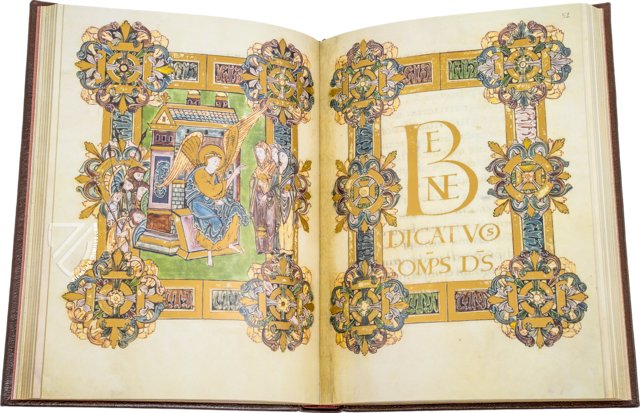 52
BENE
DICAT VOS
OMPS D̄S